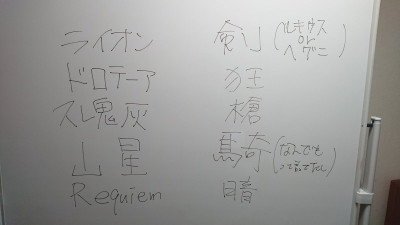 ライオン 剣(ルキウス or ヘグニ)
ドロテーア 狂
スレ鬼灰 槍
山星 騎(なんでもって言ってた)
Requiem 暗